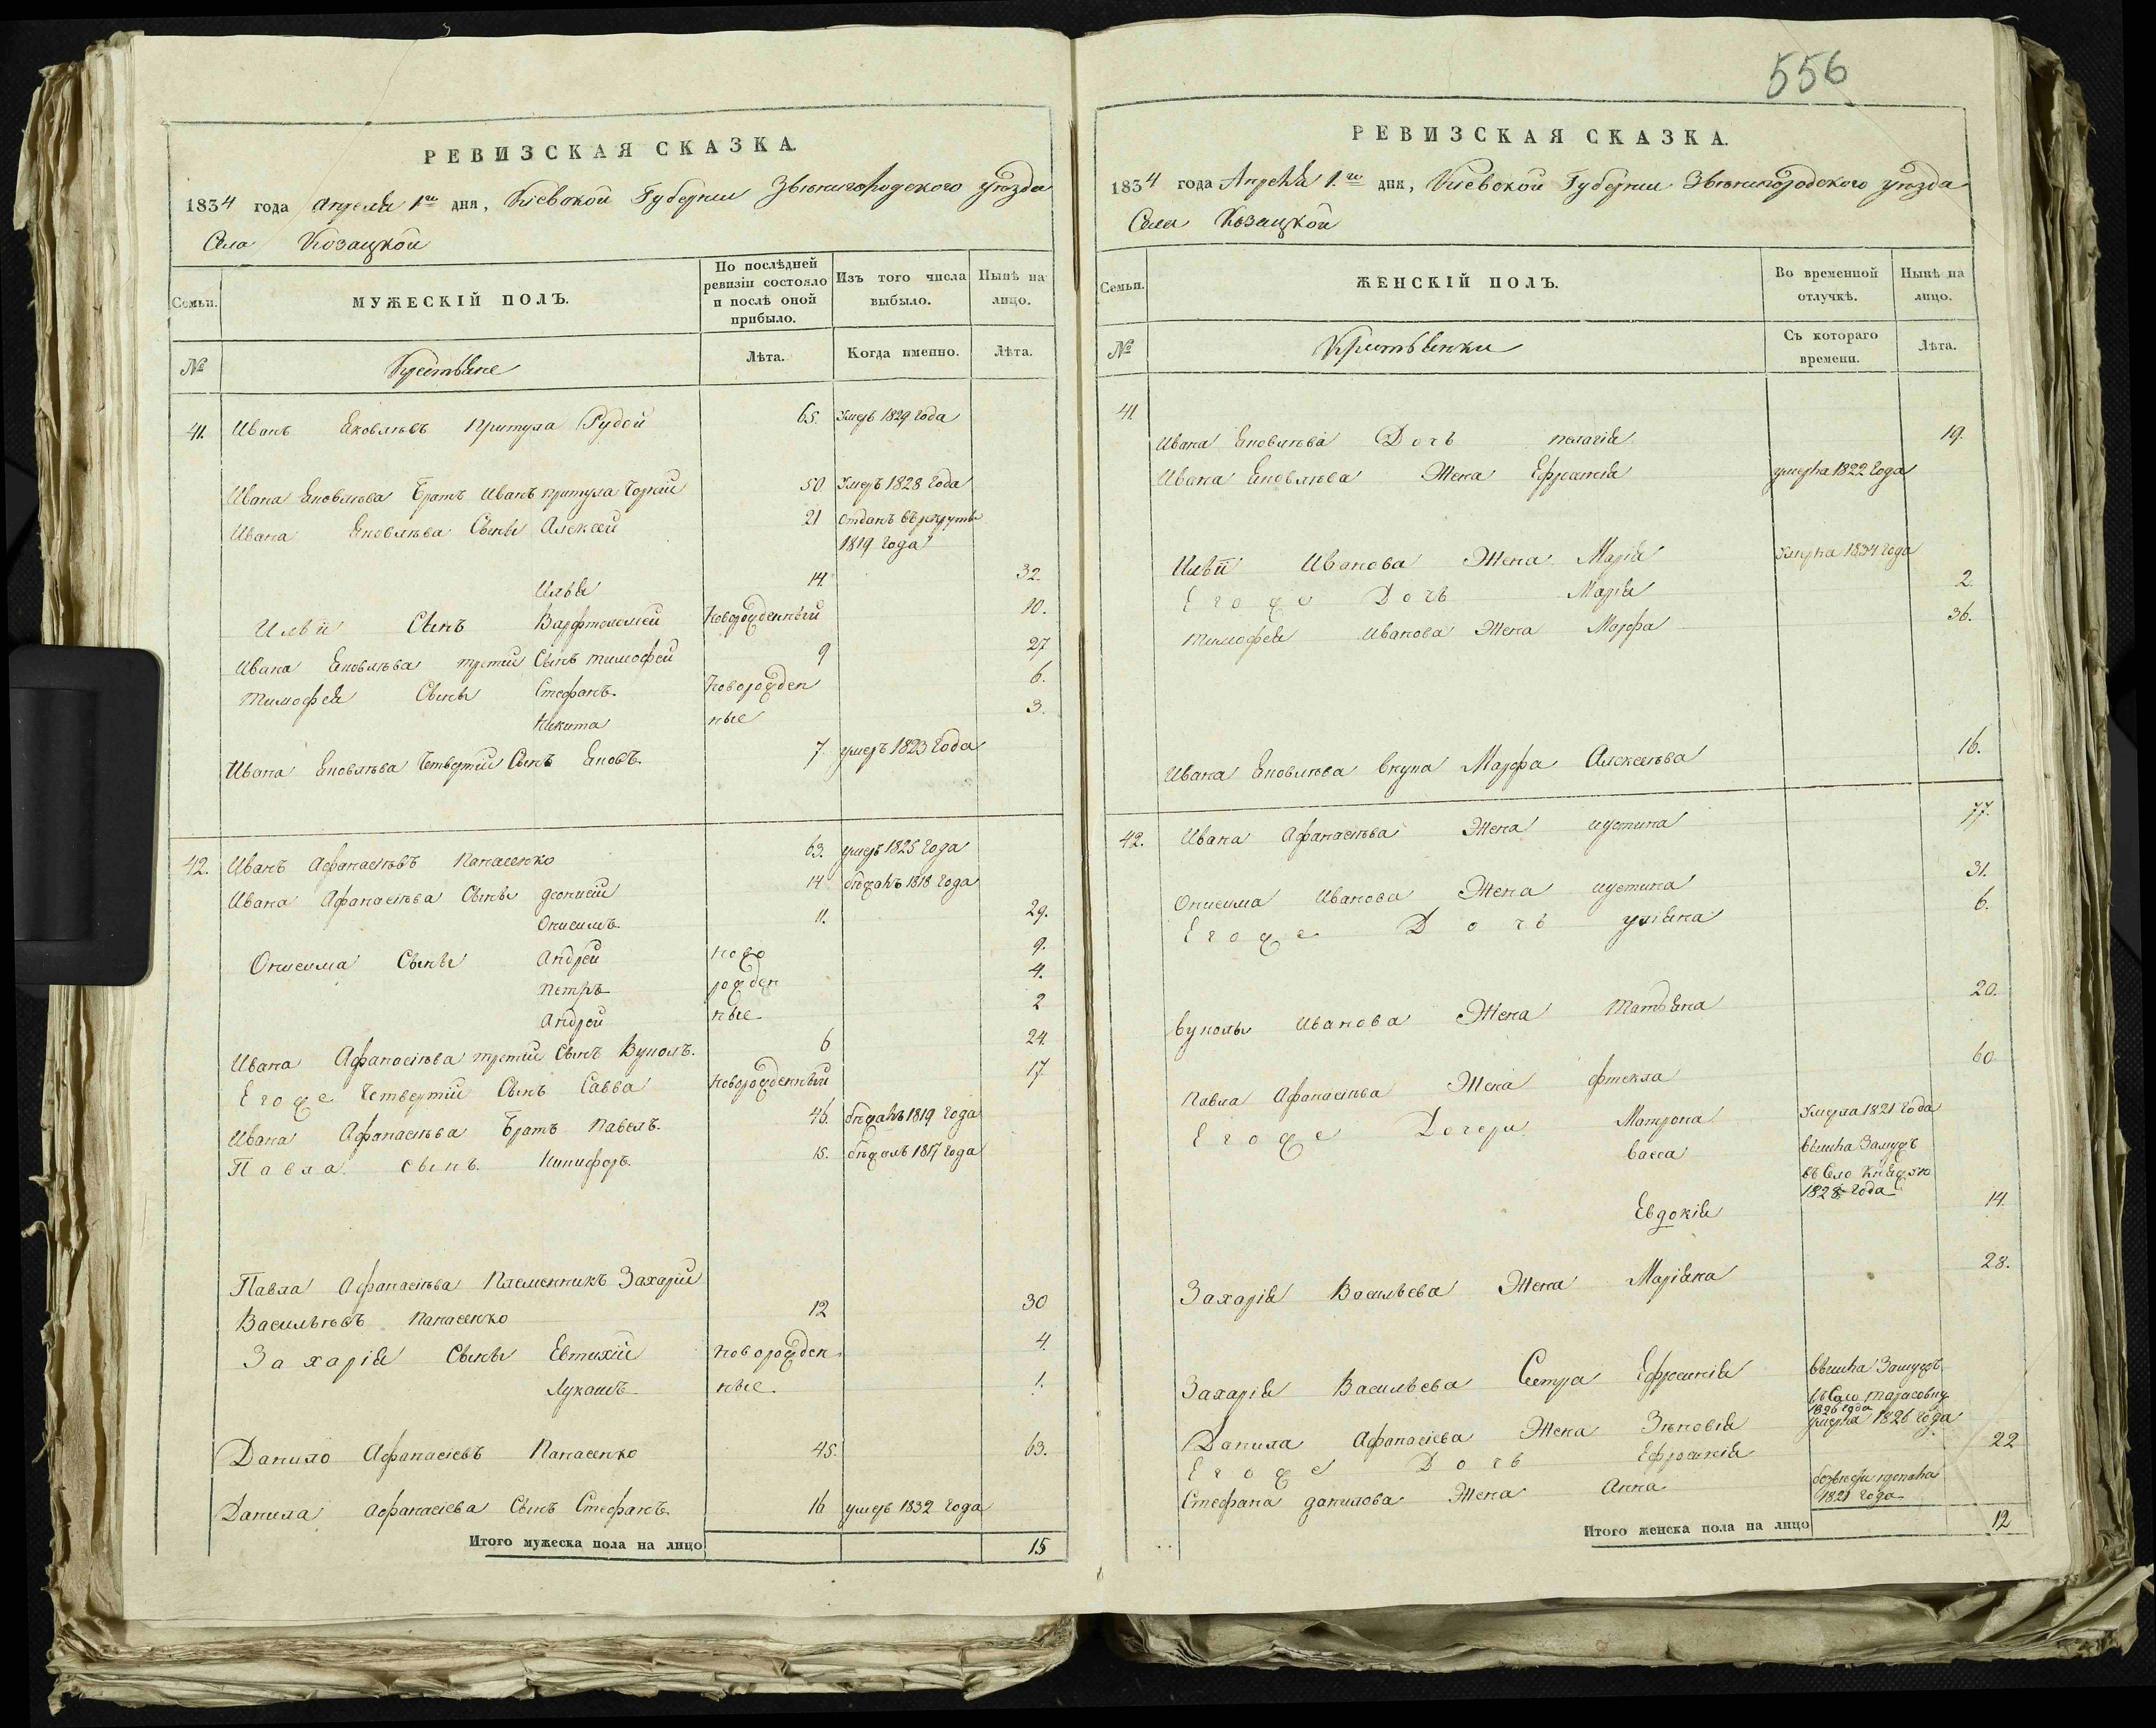 556
РЕВИЗСКАЯ СКАЗКА.
1834 года Апреля 1го дня, Кіевской Губерніи Звѣнигородского уѣзда
Села Козацкой
Семьи. МУЖЕСКІЙ ПОЛЪ. По послѣдней ревизіи состояло и послѣ оной прибыло. Изъ того числа выбыло. Нынѣ на лицо.
№ Крестьяне Лѣта. Когда именно. Лѣта.
41. Иванъ Яковлѣвъ Притула Рудой 65. умеръ 1829 года
Ивана Яковлѣва Братъ Иванъ притула Чорній 50 Умеръ 1828 года
Ивана Яковлѣва Сыны Алексей 21 отданъ въ рекруты
1819 года
Илья 14. 32.
Ильи Сынъ Варфтоломей Новорожденный 10.
Ивана Яковлѣва третій Сынъ тимофей 9 27
Тимофея Сыны Стефанъ. Новорожден 6.
Никита ные 3.
Ивана Яковлѣва Четвертій Сынъ Яковъ. 7. умеръ 1823 Года
42. Иванъ Афанасіѣвъ Панасенко 63. умеръ 1825 Года
Ивана Афанасіѣва Сыны деонисій 14 бѣжалъ 1818 Года
Онисимъ 11. 29.
Онисима Сыны Андрей ново 9.
Петръ рожден 4.
Андрей ные 2
Ивана Афанасіѣва третій Сынъ Вуколъ. 6 24.
Егоже Четвертій Сынъ Савва новорожденный 17
Ивана Афанасіѣва Братъ Павелъ. 46. бѣжалъ 1819 Года
Павла Сынъ Никифоръ. 15. бѣжалъ 1817 Года
Павла Афанасіѣва Племенникъ Захарій
Васильѣвъ Панасенко 12 30
Захарія Сыны Евтихій новорожден 4.
Лукашъ ные. 1.
Данило Афанасіевъ Панасенко 45. 63.
Данила Афанасіева Сынъ Стефанъ. 16 умеръ 1832 Года
Итого мужеска пола на лицо 15
РЕВИЗСКАЯ СКАЗКА.
1834 года Апреля 1.го дня, Кіевской Губерніи Звѣнигородского уѣзда
Села Козацкой
Семьи. ЖЕНСКІЙ ПОЛЪ. Во временной отлучкѣ. Нынѣ на лицо.
№ Крестьянки Съ котораго времени. Лѣта.
41
Ивана Яковлѣва Дочь пелагія 19.
Ивана Яковлѣва Жена Ефросинія умерла 1822 Года
Ильи Иванова Жена Марія Умерла 1834 Года
Егоже Дочь Марія 2.
Тимофея Иванова Жена Марфа 36.
Ивана Яковлѣва внука Марфа Алексеѣва 16.
42. Ивана Афанасіѣва Жена иустина 77.
Онисима Иванова Жена иустина 31.
Егоже Дочь уліяна 6.
Вуколы Иванова Жена Татьяна 20.
Павла Афанасіѣва Жена фтекла 60
Егоже Дочери Матрона Умерла 1821 Года
васса вышла Замужъ
въ Село Княжую
1828 Года
Евдокія 14.
Захарія Васильева Жена Маріяна 28.
Захарія Васильева Сестра Ефросинія вышла Замужъ
въ Село Тарасовку
1826 года
Данила Афанасіева Жена Зѣновія умерла 1826 Года
Егоже Дочь Ефросинія 22
Стефана данилова Жена Анна
1821 Года
Итого женска пола на лицо 12